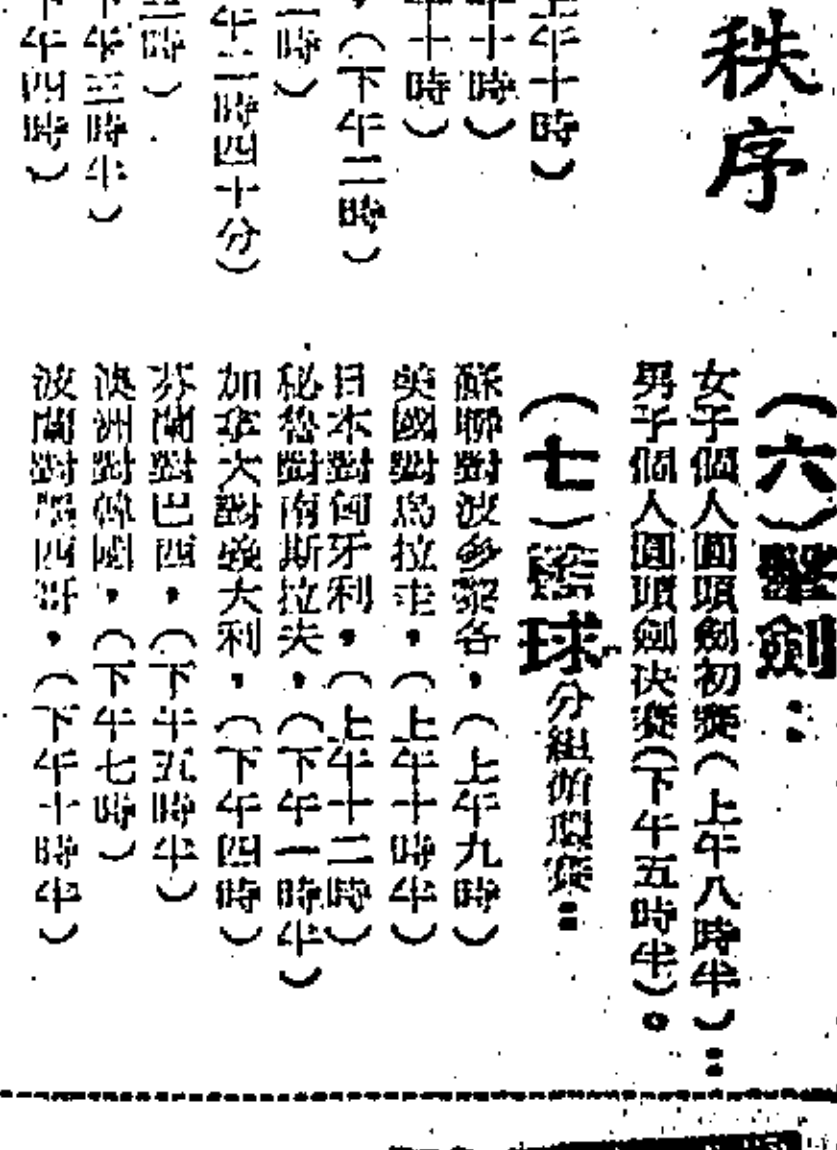 秩序
上午十時）
午十時）
午十時）
，（下午二時）
一時）
午二時四十分）
三時）
下午三時半）
下午四時）
（六）擊劍：
女子個人圓頭劍初賽（上午八時半）：
男子個人圓頭劍決賽（下午五時半）。
（七）籃球分組循環賽：
蘇聯對波多黎各，（上午九時）
美國對烏拉圭，（上午十時半）
日本對匈牙利，（上午十二時）
秘魯對南斯拉夫，（下午一時半）
加拿大對義大利，（下午四時）
芬蘭對巴西，（下午五時半）
澳洲對韓國，（下午七時）
波蘭對墨西哥，（下午十時半）